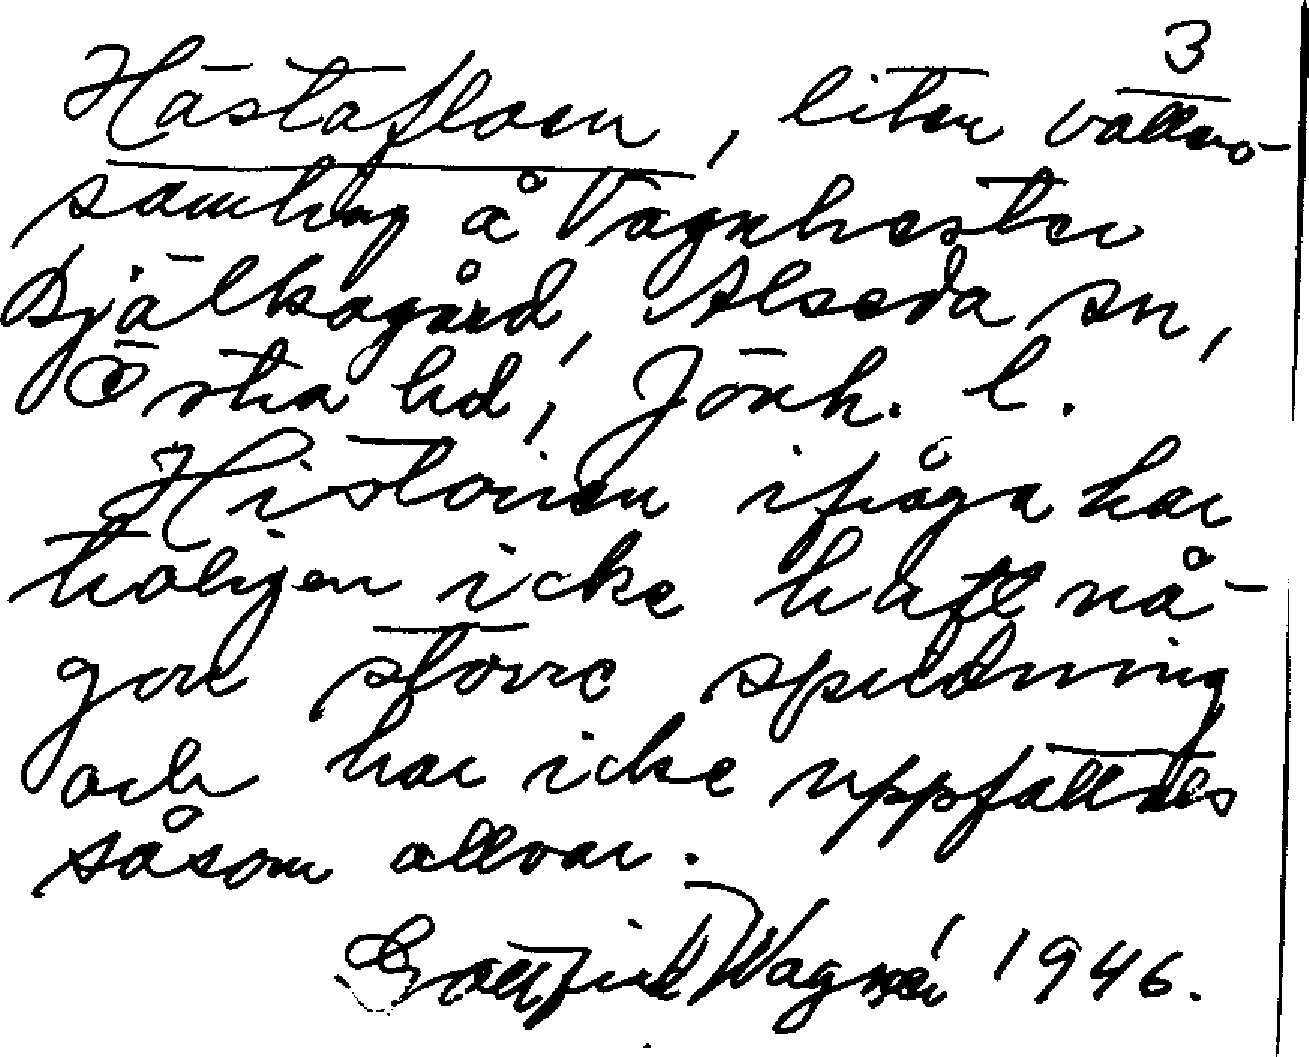 3
Hästafloen, liten vatten-
samling å Vagnhester
Bjälkagård, Alseda sn,
Östra hd, Jönk. l.
Historien ifråga har
troligen icke haft nå-
gon större spridning
och har icke uppfattats
såsom allvar.
Gottfrid Wagnér 1946.